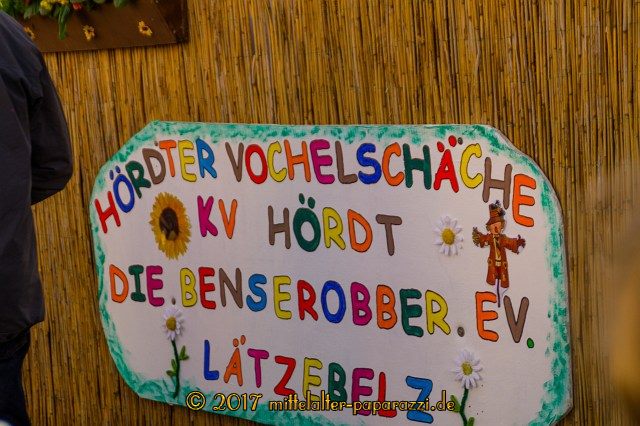 HÖRDTER VOCHELSCHÄCHE
KV HÖRDT
DIE BENSEROBBER EV.
LÄTZEBELZ
© 2017 mittelalter-paparazzi.de